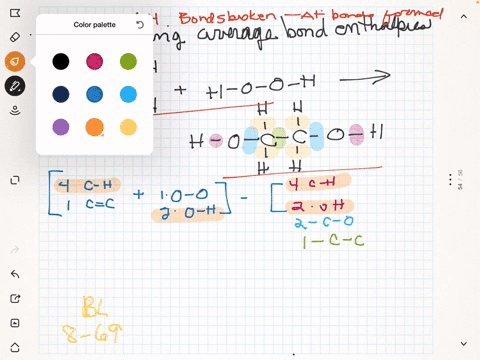 Color palette
H. Bonds broken — At bonds formed
ing average bond enthalpies
+ H-O-O-H →
H H
H-O-C-C-O-H
H H
[4 C-H + 1·O-O ] - [4 C-H
1 C=C 2·O-H 2·OH
2-C-O
1-C-C
BL
8-69